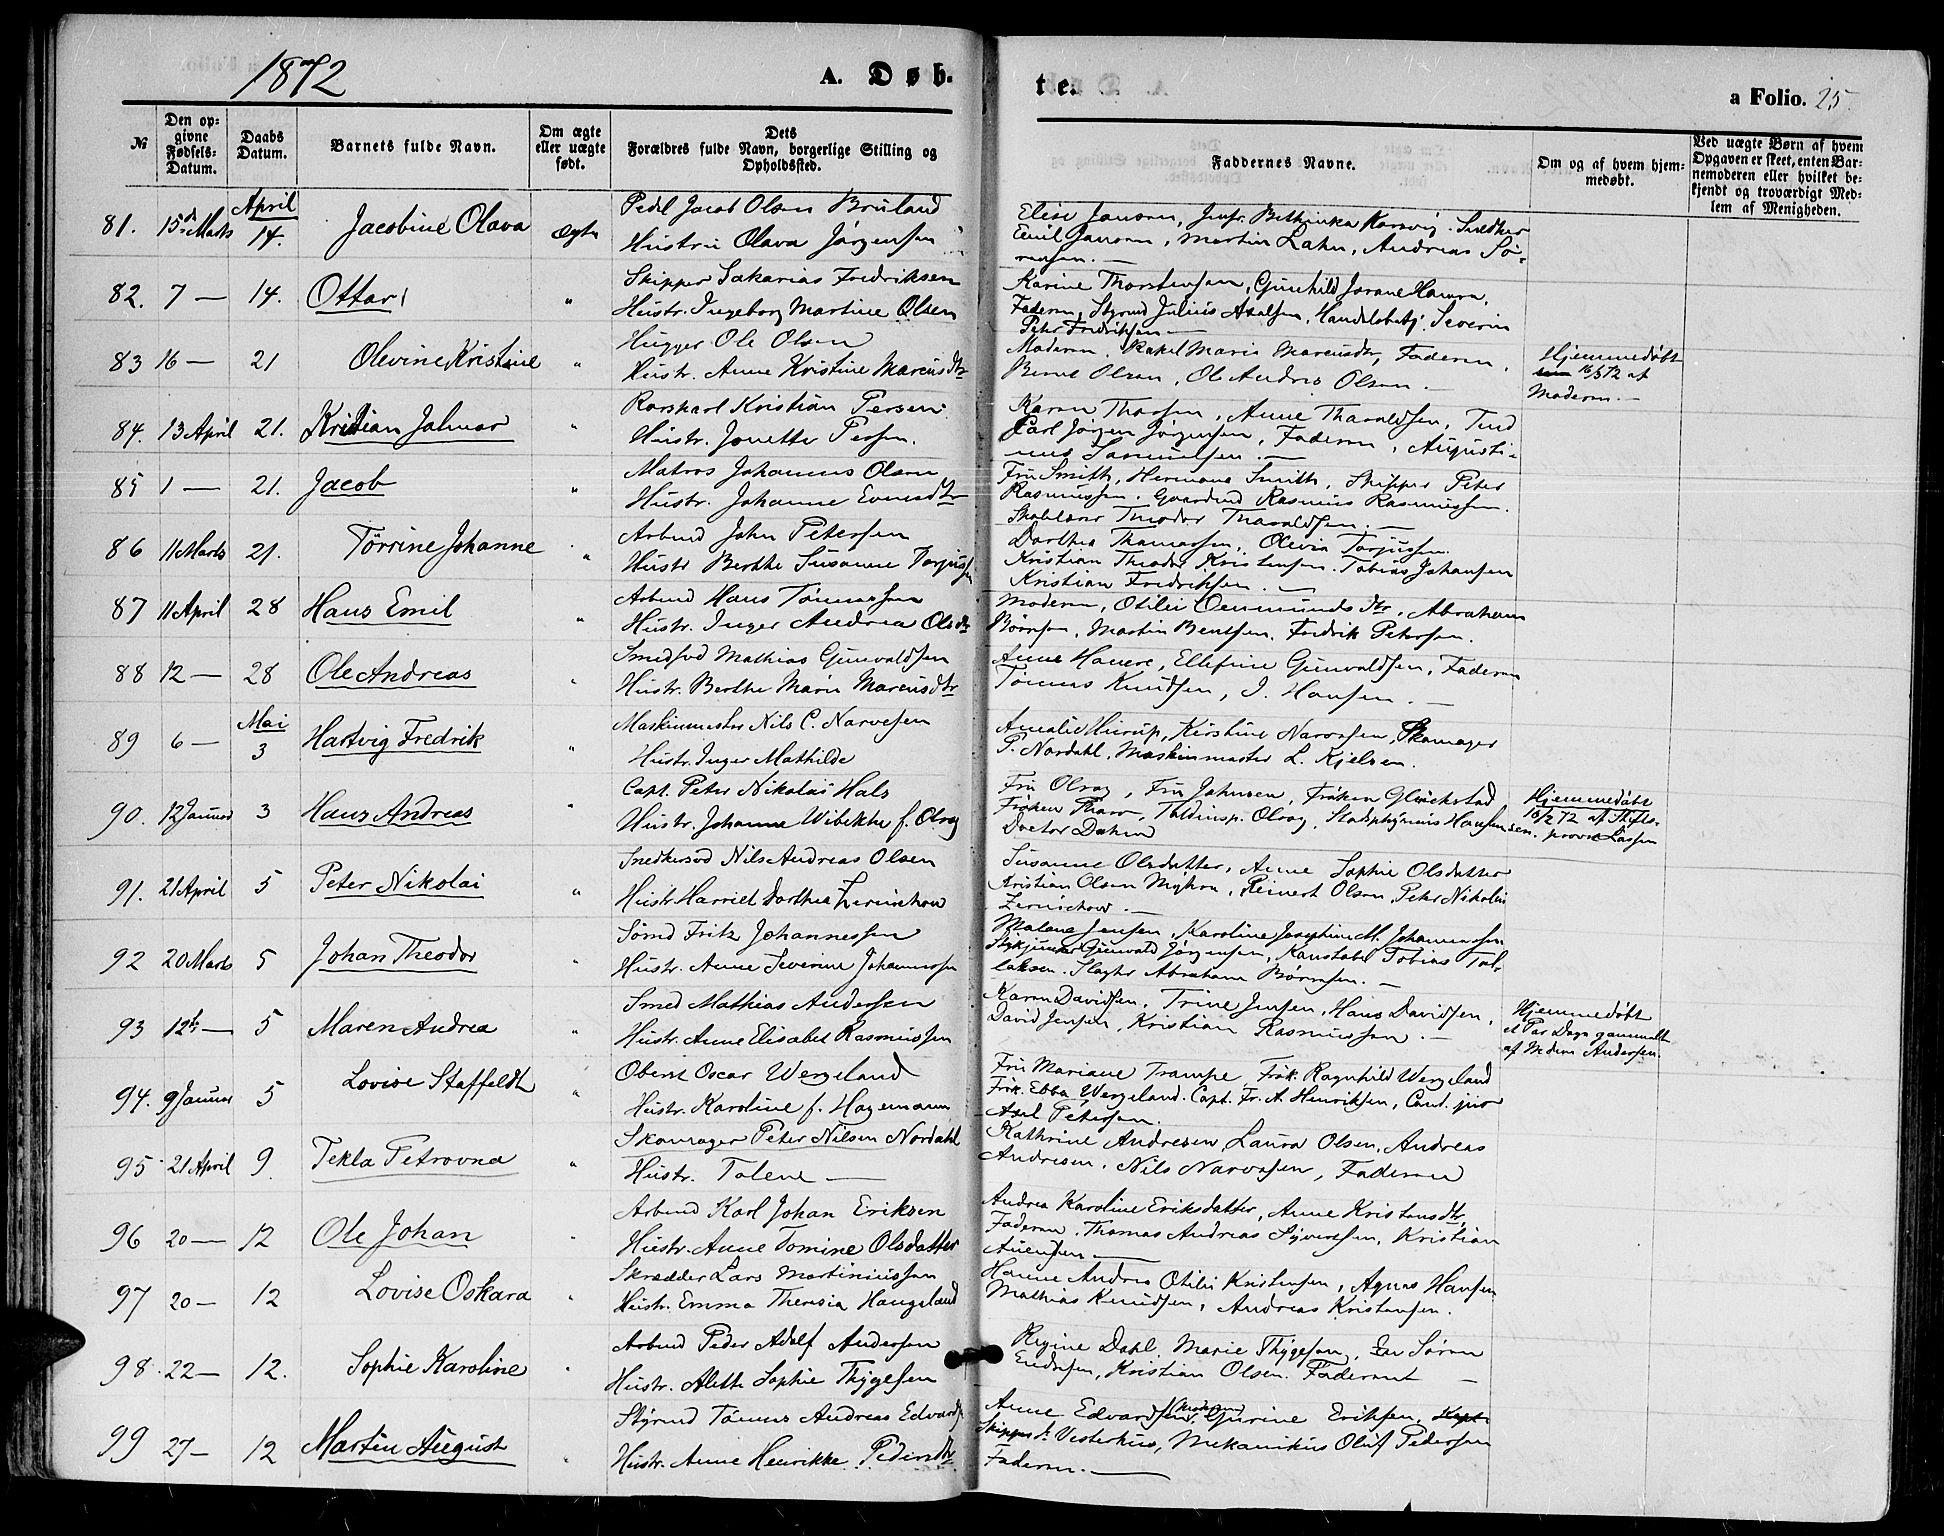 1872
A. Døb-
te.
a Folio. 25.
№
Den op-
givne
Fødsels-
Datum.
Daabs
Datum.
Barnets fulde Navn.
Om ægte
eller uægte
født.
Dets
Forældres fulde Navn, borgerlige Stilling og
Opholdssted.
Faddernes Navne.
Om og af hvem hjem-
medøbt.
Ved uægte Børn af hvem
Opgaven er skeet, enten Bar-
nemoderen eller hvilket be-
kjendt og troværdigt Med-
lem af Menigheden.
81. 15de Marts April 14. Jacobine Olava Ægte
Jacob Olsen Bruland
Hustru Olava Jørgensen
Elise Jansen, Jmfr. Snedker
Emil Jansen, Martin Lahn, Andreas Sø-
rensen. —
82. 7 — 14. Ottar "
Skipper Sakarias Fredriksen
Hustr. Ingeborg Martine Olsen
Karine Thorstensen, Gunhild
Faderen, Styrmd Julius Axelsen, Handelsbetj. Severin
Peter Fredriksen —
83 16 — 21 Olevine Kristine "
Hugger Ole Olsen
Hustr. Anne Kristine Marcusdtr
Moderen, Rakel Marie Marcusdtr, Faderen,
Bernt Olsen, Ole Andres Olsen. —
Hjemmedøbt
16/3 72 af
Moderen. —
84. 13 April 21. Kristian Jalmar "
Rorskarl Kristian Persen
Hustr. Jonette Persen.
Karen Thorsen, Anne Tharaldsen,
Carl Jørgen Jørgensen, Faderen, Augusti-
nus Samuelsen. —
85 1 — 21. Jacob "
Matros Johannes Olsen
Hustr. Johanne Evensdtr
Fru Smith, Hermana Smith, Skipper Peter
Rasmussen. Gaardmd Rasmus Rasmussen.
Theodor Tharaldsen. —
86 11 Marts 21. Tørrine Johanne "
Arbmd John Petersen
Hustr Berthe Susanne Torjussen
Dorthea Thomassen, Olevia Torjussen.
Kristian Theodor Kristensen. Tobias Johansen
Kristian Fredriksen. —
87 11 April 28 Hans Emil "
Arbmd Hans Tønnessen
Hustr. Inger Andrea Olsdtr
Moderen, Otilie Oenmundsdtr, Abraham
Børresen, Martin Bentsen, Fredrik Petersen.
88 12 — 28 Ole Andreas "
Smedsvd Mathias Gunvaldsen
Hustr. Berthe Marie Marcusdtr
Anne Hauere, Ellefine Gunvaldsen, Faderen
Tønnes Knudsen, I. Hansen. —
89 6 — Mai 3 Hartvig Fredrik "
Maskinmester Nils C. Narvesen
Hustr. Inger Mathilde
Amalie Hiurup, Kirstine Narvesen, Skomager
P. Nordahl, Maskinmester L. Kjelsen.
90. 12 Januar 3 Hans Andreas "
Capt. Peter Nikolai Hals
Hustr. Johanna Wibekke f. Olrog
Fru Olrog, Fru Johnsen, Frøken Glückstad
Frøken Tharo, Toldinsp. Olrog, Stadsphysicus Hansen
Doctor
Hjemmedøbt
18/2 72 af Stifts-
provst Lassen
91. 21 April 5 Peter Nikolai "
Snedkersvd Nils Andreas Olsen
Hustr. Harriet Dorthea Zernichow
Susanne Olsdatter, Anne Sophie Olsdatter
Kristian Olsen Myhra, Reinert Olsen, Peter Nikolai
Zernichow. —
92 20 Marts 5 Johan Theodor "
Sømd Fritz Johannessen
Hustr. Anne Severine Johannessen
Malene Jensen, Karoline Josephine M. Johannessen
Stykjunker Gunvald Jørgensen, Konstabel Tobias Tal-
laksen. Slagter Abraham Børresen. —
93 12te — 5 Maren Andrea "
Smed Mathias Andersen
Hustr. Anne Elisabet Rasmussen
Karen Davidsen, Trine Jensen, Hans Davidsen,
David Jensen, Kristian Rasmussen. —
Hjemmedøbt
et Par Dage gammelt
af Andersen.
94. 9 Januar 5 Lovise Staffeldt "
Oberst Oscar Wergeland
Hustr. Karoline f. Hagemann
Fru Mariane Trampe, Frøk. Ragnhild Wergeland
Frøk. Ebba Wergeland. Capt. Fr. A. Henriksen, Cand. jur
Axel Petersen.
95 21 April 9. Tekla Petrovna "
Skomager Peter Nilsen Nordahl
Hustr. Tolene —
Kathrine Andresen, Laura Olsen, Andreas
Andresen, Nils Narvesen, Faderen
96 20 — 12 Ole Johan "
Arbmd Karl Johan Eriksen
Hustr. Anne Tomine Olsdatter
Andrea Karoline Eriksdatter, Anne Kristensdtr,
Faderen, Thomas Andreas Syversen, Kristian
Auensen —
97 20 — 12 Lovise Oskara "
Skrædder Lars Martiniussen
Hustr. Emma Theresia Haugeland
Hanne Andrea Otilie Kristensen, Agnes Hansen
Mathias Knudsen, Andreas Kristensen.
98. 22 — 12. Sophie Karoline "
Arbmd Peder Adolf Andersen
Hustr. Alette Sophie Thygesen
Regine Dahl, Marie Thygesen, Søren
Endresen, Kristian Olsen. Faderen —
99 27 — 12 Martin August "
Styrmd Tønnes Andreas Edvards
Hustr. Anne Henrikke Pedersdtr
Anne Edvardsen, (Moderen) Gurine Eriksen,
Skipper A. Vesterhus, Mekanikus Oluf Pedersen
Faderen. —